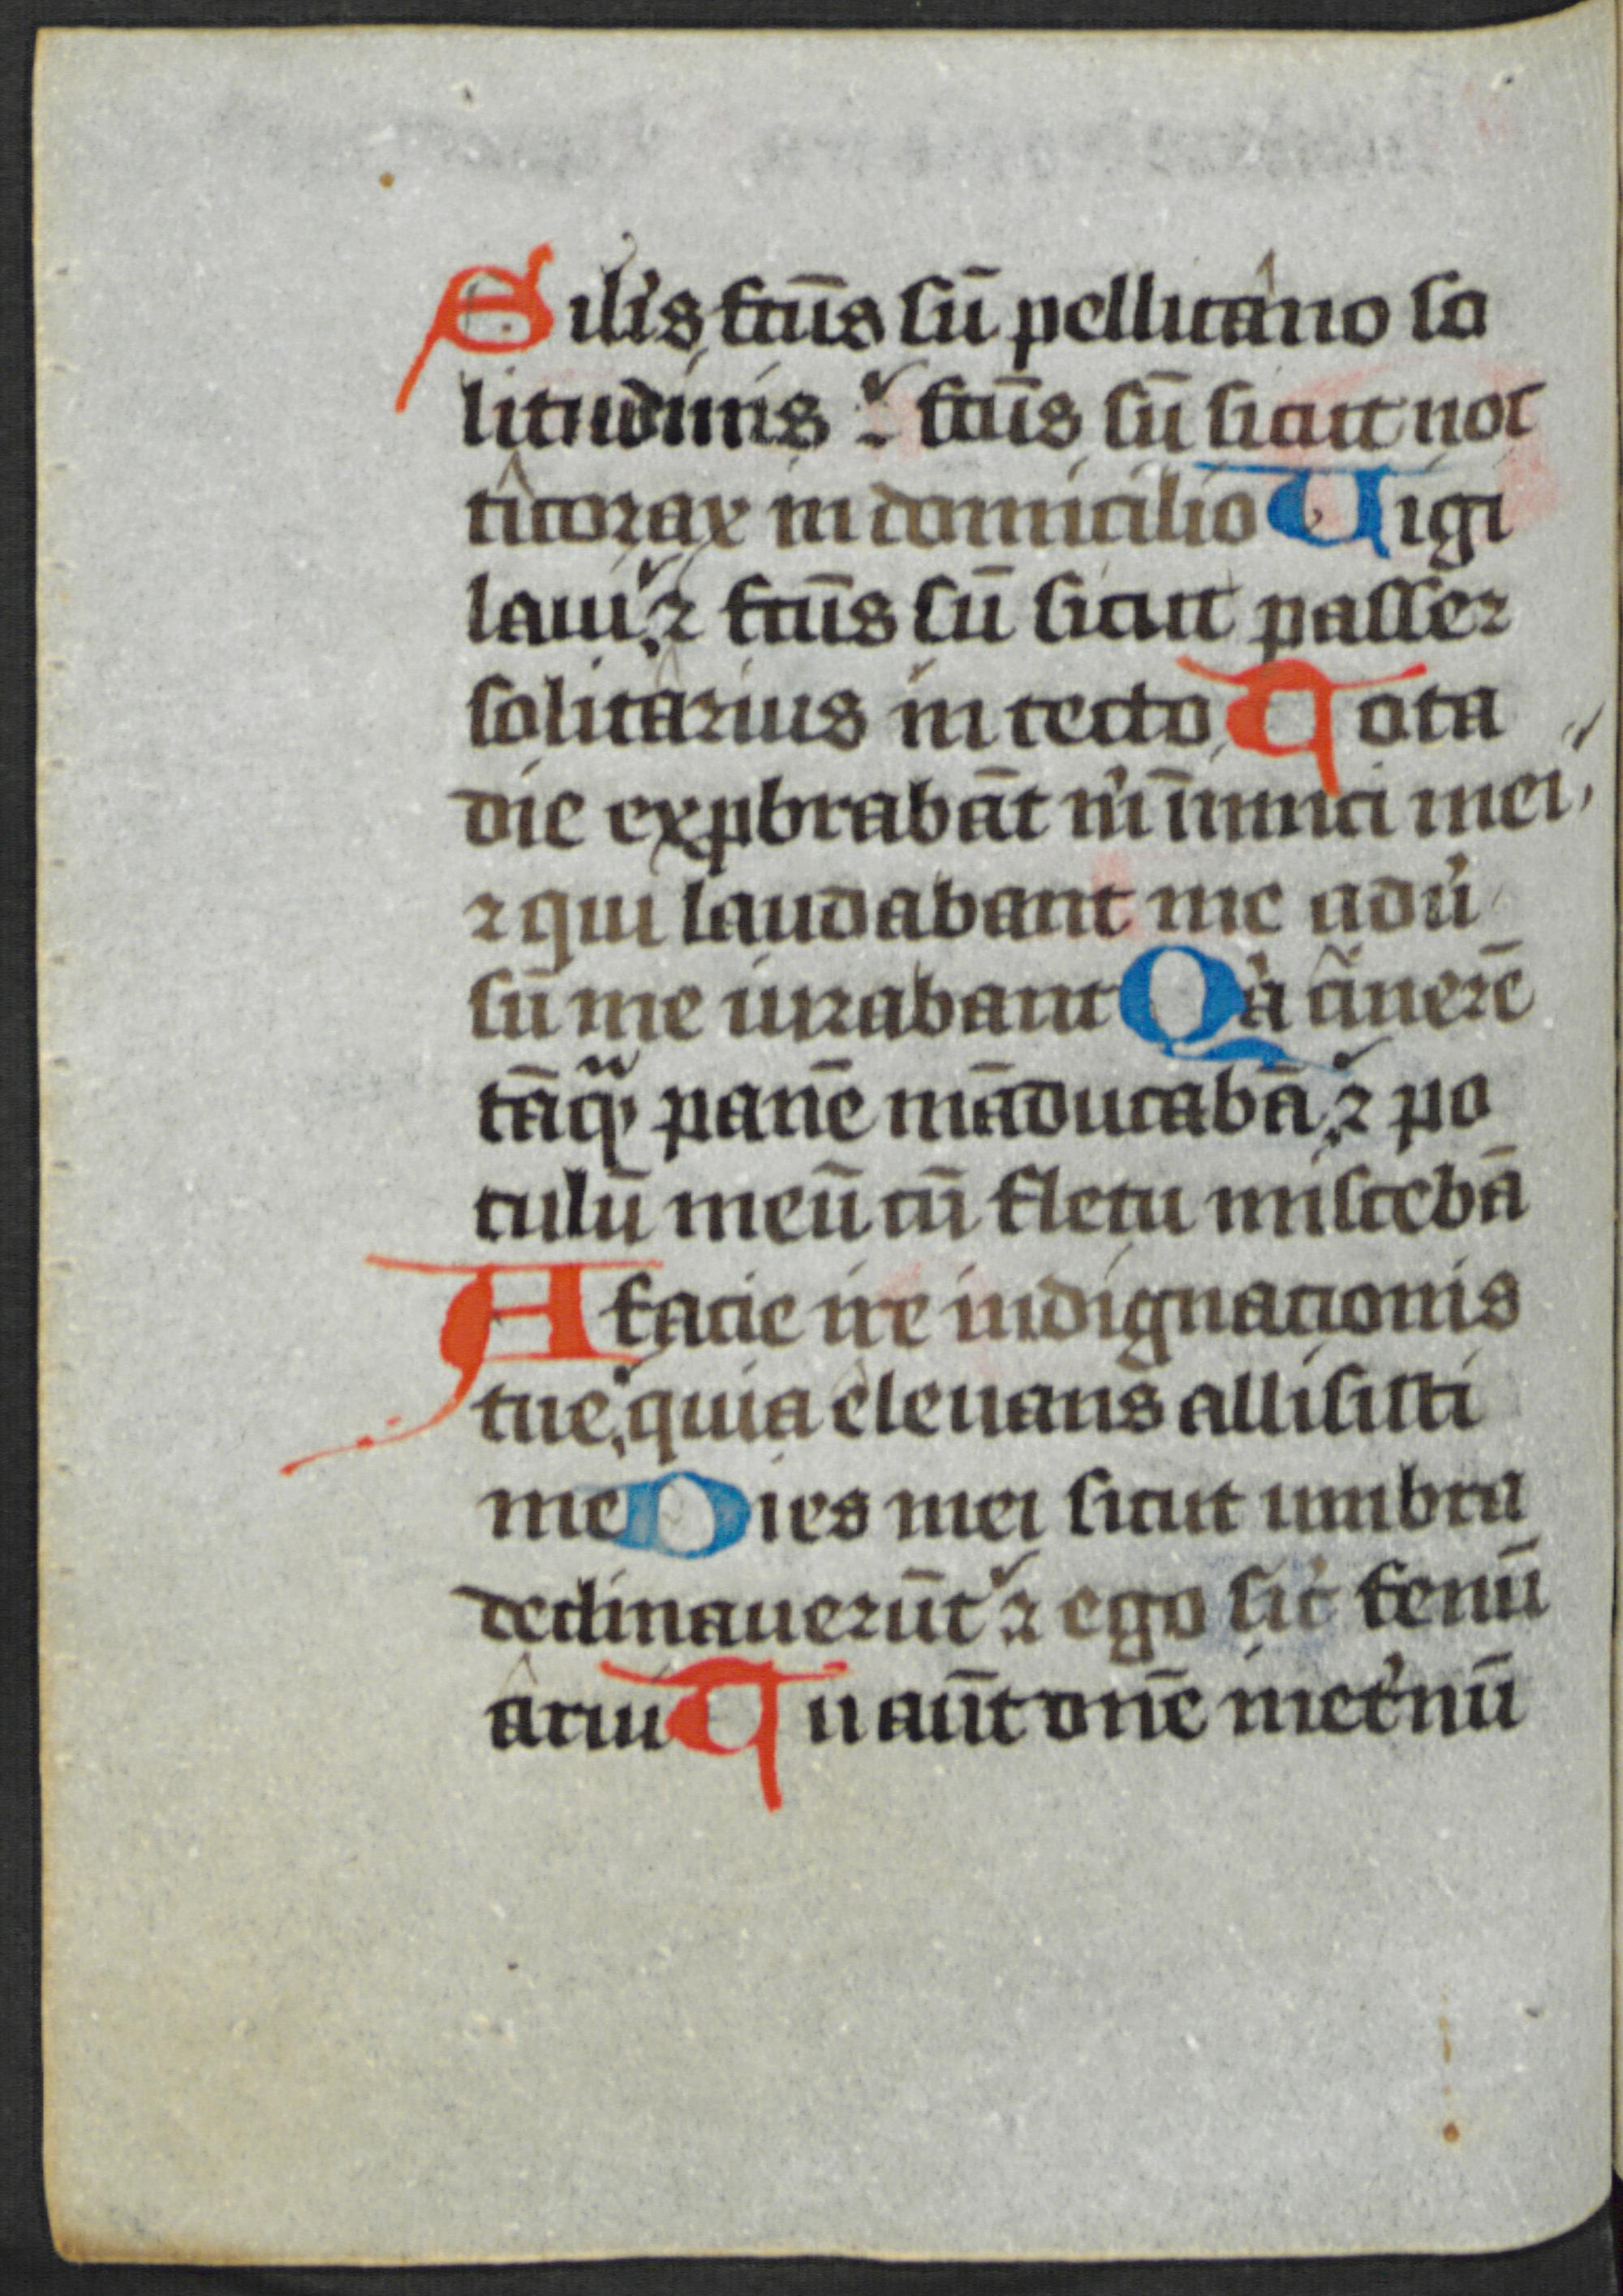 Silis fcūs sū pellicano so
litudinis : fcūs sū sicut noc
ticorax in domicilio Uigi
laui ꝛ fcūs sū sicut passer
solitarius in tecto Tota
die exꝓbrabāt m̄ inimici mei,
ꝛ qui laudabant me adu̾
sū me iurabant Qa cinerē
tāqͣ panē māducabā ꝛ po
culū meū cū fletu miscebā
A facie ire indignacionis
tue quia eleuans allisisti
me Dies mei sicut umbra
declinauerūt ꝛ ego sic̾ fenū
arui Tu aūt dn̄e inet̾nū